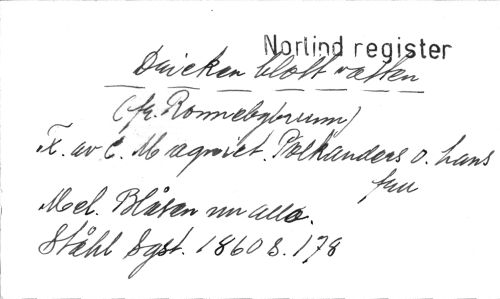 Norlind register
Dricken blott vatten
(fr. Ronnebybrunn)
T. av C. Magnret. Polkanders o. hans
fru
Mel. Blåsen nu alla.
Ståhl Syst. 1860 s. 178